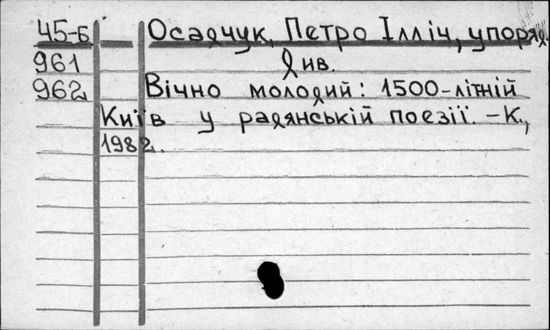 45-Б Осадчук, Петро Ілліч, упоряд.
961 Див.
962 Вічно молодий: 1500-літній
Київ у радянській поезії. -К.,
1982.